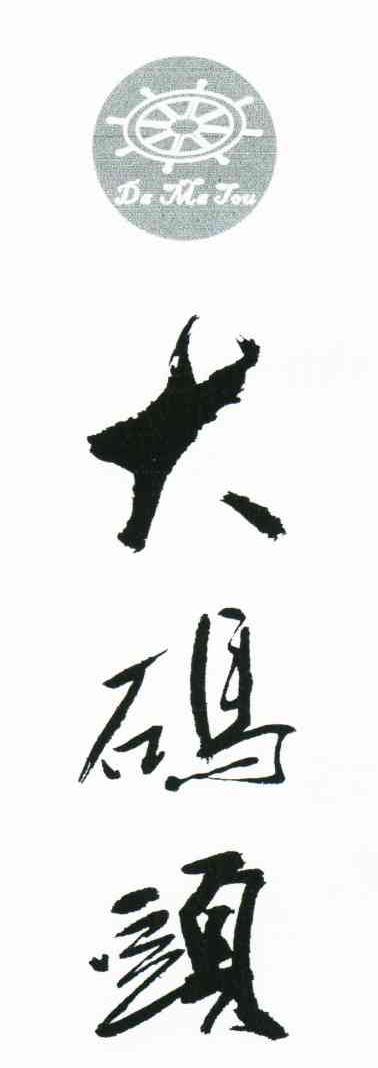 Da Ma Tou
大
碼
頭